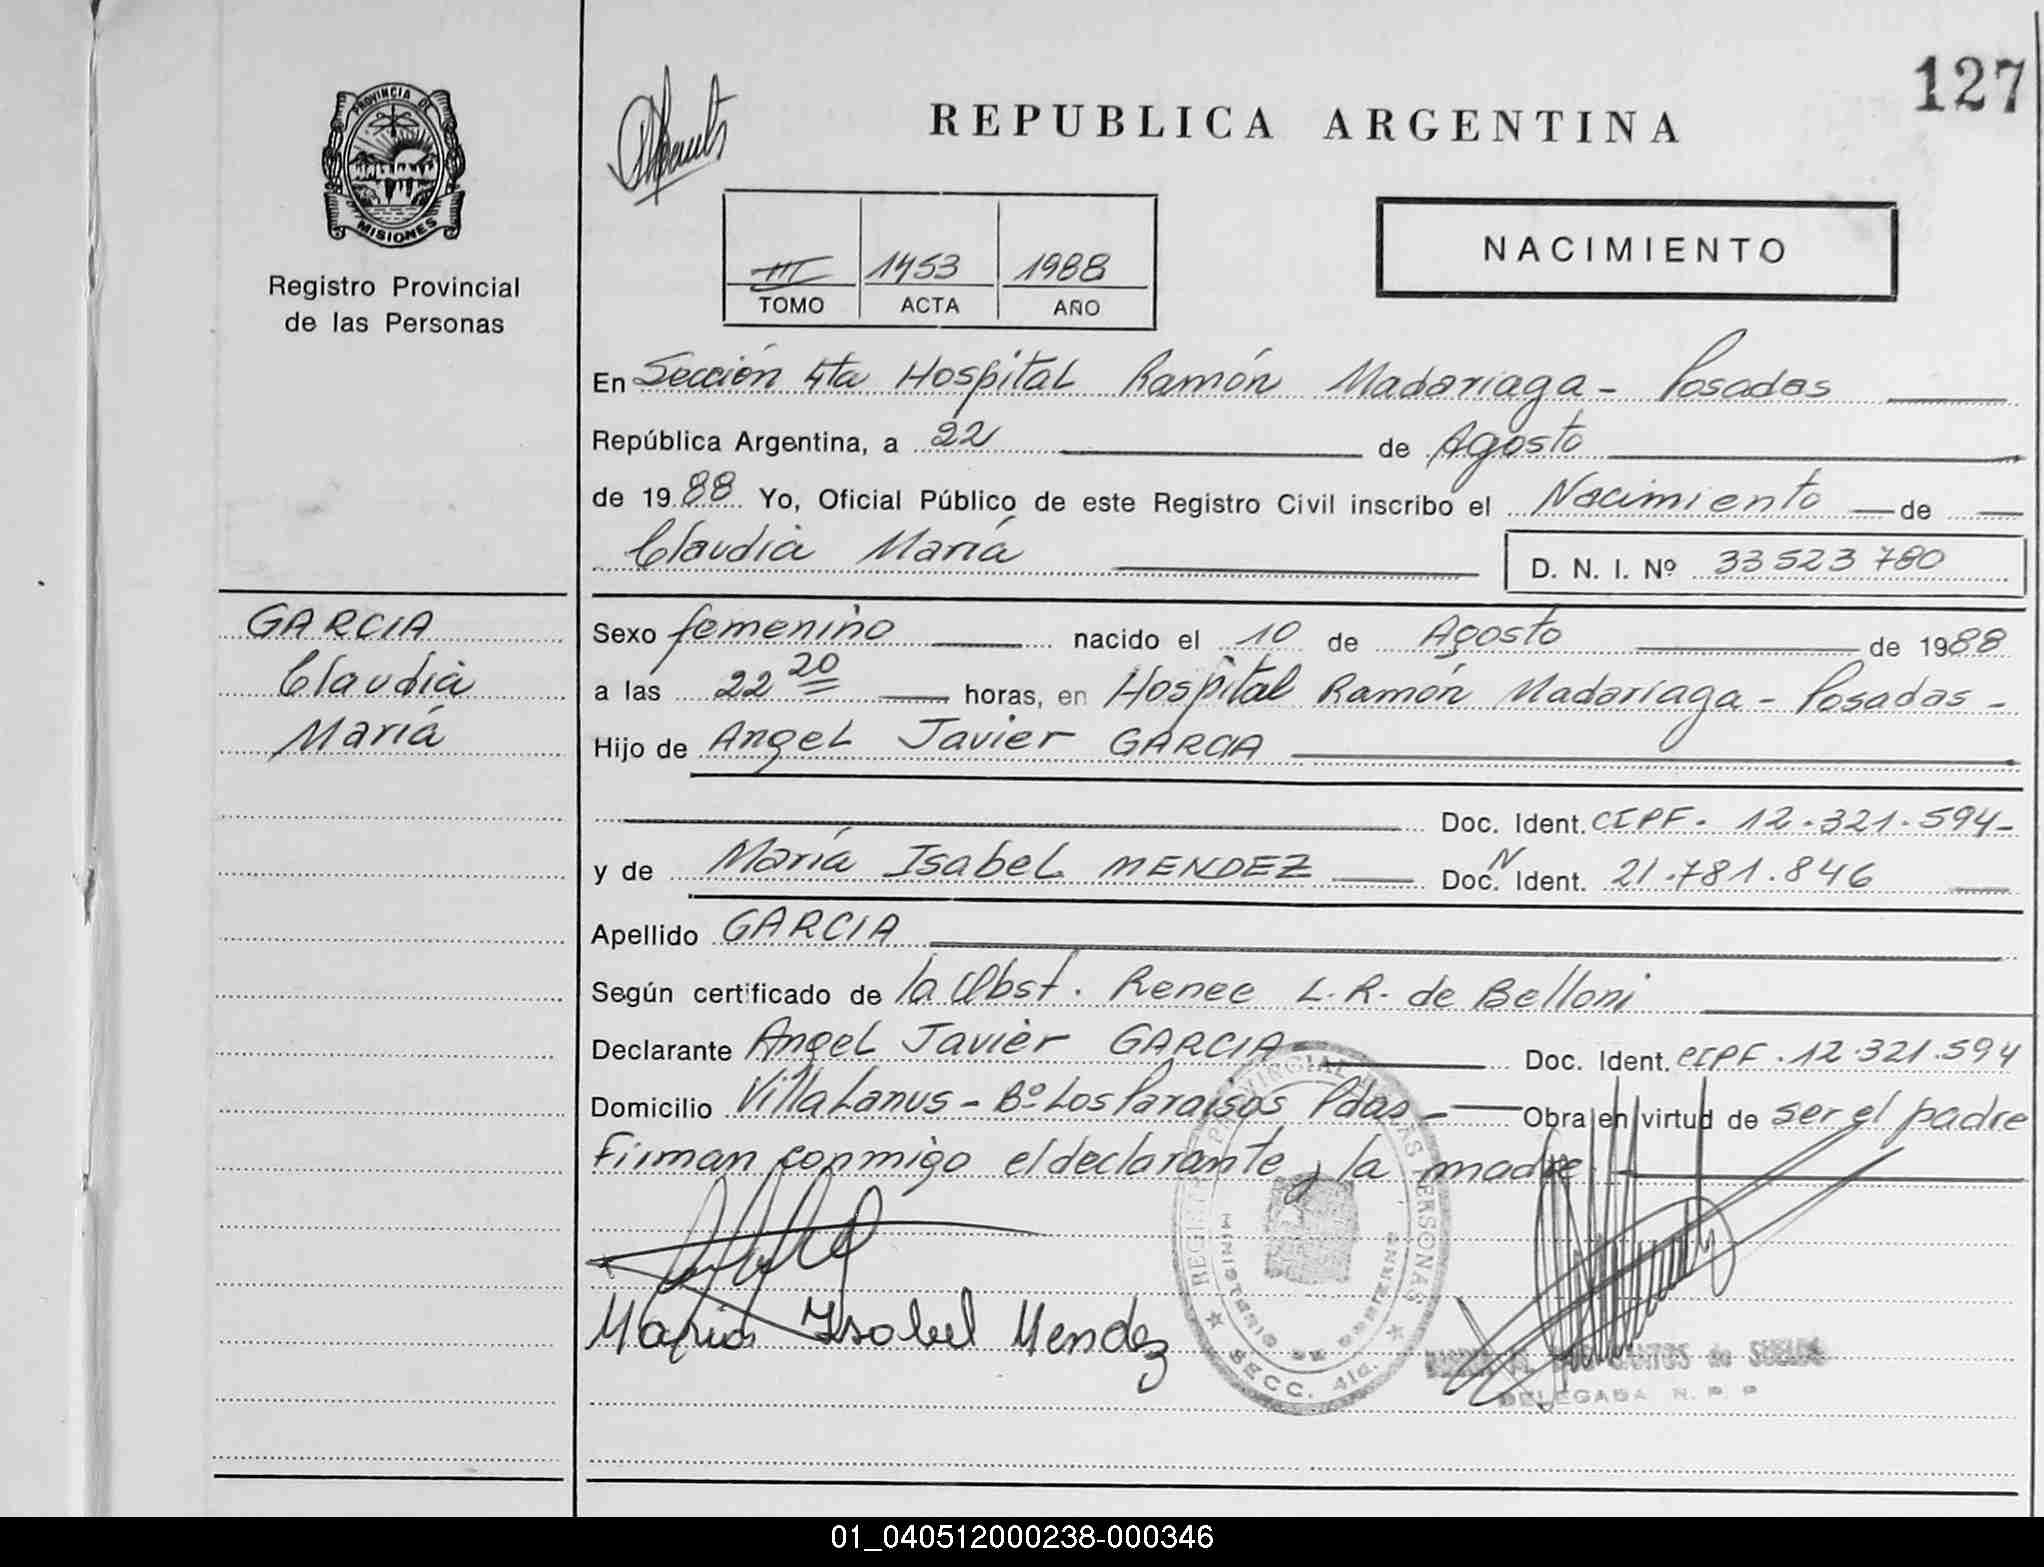 127
PROVINCIA DE
MISIONES
Registro Provincial
de las Personas
REPUBLICA ARGENTINA
III 1453 1988
TOMO ACTA AÑO
NACIMIENTO
En Sección 4ta Hospital Ramón Madariaga - Posadas
República Argentina, a 22 de Agosto
de 1988 Yo, Oficial Público de este Registro Civil inscribo el Nacimiento de
Claudia María
D. N. I. Nº 33523780
GARCIA
Claudia
María
Sexo femenino nacido el 10 de Agosto de 1988
a las 22 20 horas, en Hospital Ramón Madariaga - Posadas -
Hijo de Angel Javier GARCIA
Doc. Ident. CIPF. 12.321.594-
y de María Isabel MENDEZ Doc. N Ident. 21.781.846
Apellido GARCIA
Según certificado de la Obst. Renee L. R. de Belloni
Declarante Angel Javier GARCIA Doc. Ident. CIPF. 12.321.594
Domicilio Villa Lanus - Bº Los Paraisos Pdas - Obra en virtud de ser el padre
Firman conmigo el declarante y la madre
Maria Isabel Mendez
REGISTRO PROVINCIAL DE LAS PERSONAS
MINISTERIO DE GOBIERNO
SECC. 4ta.
DELEGADA R. P. P
01_040512000238-000346